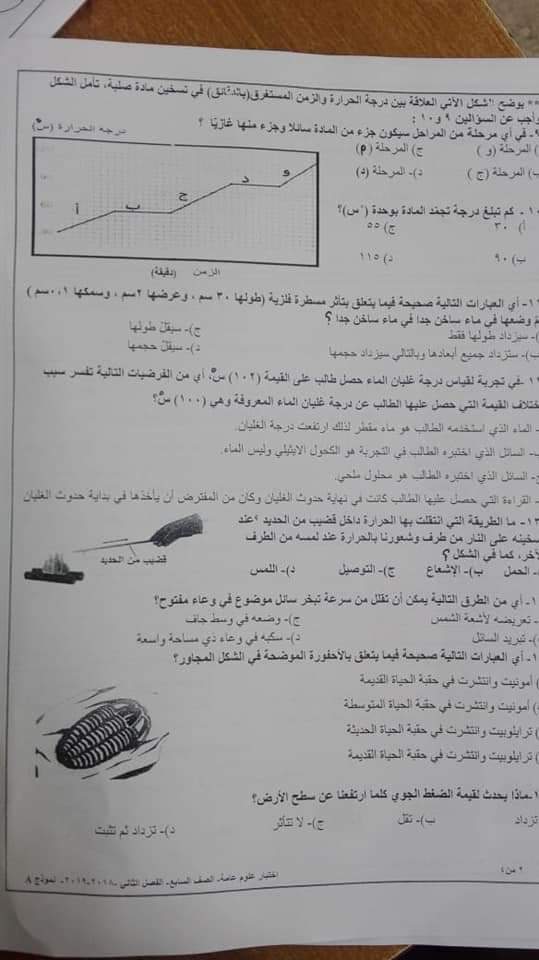 ** يوضح الشكل الآتي العلاقة بين درجة الحرارة والزمن المستغرق (بالدقائق) في تسخين مادة صلبة، تأمل الشكل
وأجب عن السؤالين ٩ و ١٠ :
٩- في أي مرحلة من المراحل سيكون جزء من المادة سائلا وجزء منها غازيًا ؟
) المرحلة (و )
ج) المرحلة (م)
ب) المرحلة (ج )
د)- المرحلة (د)
درجه الحرارة (سْ)
أ
ب
ج
د
و
الزمن (دقيقة)
١٠- كم تبلغ درجة تجمّد المادة بوحدة (°س)؟
أ) ٣٠
ج) ٥٥
ب) ٩٠
د) ١١٥
١١- أي العبارات التالية صحيحة فيما يتعلق بتأثر مسطرة فلزية (طولها ٣٠ سم ، وعرضها ٢سم ، وسمكها ٠،١سم )
تم وضعها في ماء ساخن جدا في ماء ساخن جدا ؟
)- سيزداد طولها فقط
ج)- سيقلّ طولها
ب)- ستزداد جميع أبعادها وبالتالي سيزداد حجمها
د)- سيقلّ حجمها
-في تجربة لقياس درجة غليان الماء حصل طالب على القيمة (١٠٢) سْ، أي من الفرضيات التالية تفسر سبب
اختلاف القيمة التي حصل عليها الطالب عن درجة غليان الماء المعروفة وهي (١٠٠) سْ؟
- الماء الذي استخدمه الطالب هو ماء مقطر لذلك ارتفعت درجة الغليان.
- السائل الذي اختبره الطالب في التجربة هو الكحول الايثيلي وليس الماء.
- السائل الذي اختبره الطالب هو محلول ملحي.
- القراءة التي حصل عليها الطالب كانت في نهاية حدوث الغليان وكان من المفترض أن يأخذها في بداية حدوث الغليان
١٣- ما الطريقة التي انتقلت بها الحرارة داخل قضيب من الحديد ؟عند
تسخينه على النار من طرف وشعورنا بالحرارة عند لمسه من الطرف
الآخر، كما في الشكل ؟
)- الحمل
ب)- الإشعاع
ج)- التوصيل
د)- اللمس
قضيب من الحديد
- أي من الطرق التالية يمكن أن تقلل من سرعة تبخر سائل موضوع في وعاء مفتوح؟
- تعريضه لأشعة الشمس
ج)- وضعه في وسط جاف
)- تبريد السائل
د)- سكبه في وعاء ذي مساحة واسعة
- أي العبارات التالية صحيحة فيما يتعلق بالأحفورة الموضحة في الشكل المجاور؟
) أمونيت وانتشرت في حقبة الحياة القديمة
) أمونيت وانتشرت في حقبة الحياة المتوسطة
) ترايلوبيت وانتشرت في حقبة الحياة الحديثة
) ترايلوبيت وانتشرت في حقبة الحياة القديمة
-ماذا يحدث لقيمة الضغط الجوي كلما ارتفعنا عن سطح الأرض؟
تزداد
ب)- تقل
ج)- لا تتأثر
د)- تزداد ثم تثبت
٢ من ٤
اختبار علوم عامة- الصف السابع- الفصل الثاني -٢٠١٨-٢٠١٩- نموذج A